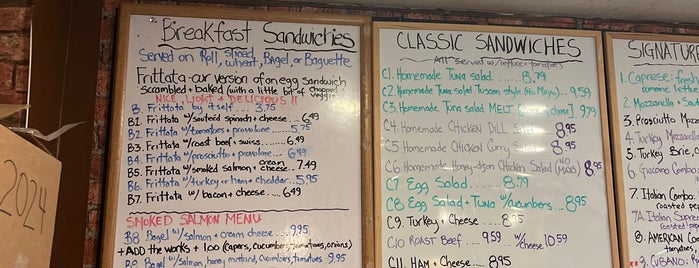 Breakfast Sandwiches
Served on Roll, sliced wheat, Bagel, or Baguette
Frittata-our version of an egg sandwich
scrambled + baked (with a little bit of chopped veggies)
NICE, LIGHT + DELICIOUS !!
B. Frittata by itself.. 3.75
B1. Frittata w/sauteed spinach + cheese.. 6.49
B2. Frittata w/tomatoes + provolone... 5.75
B3. Frittata w/roast beef + swiss.... 6.49
B4. Frittata w/prosciutto + provolone... 6.49
B5. Frittata w/smoked salmon + cream cheese.. 7.49
B6. Frittata w/turkey or ham + cheddar. 5.95
B7. Frittata w/bacon + cheese.... 6.49
SMOKED SALMON MENU
B8 Bagel w/salmon + cream cheese... 9.95
+ ADD the works + 1.00 (capers, cucumbers, tomatoes, onions)
B9 Bagel w/salmon, honey mustard, cucumbers, tomatoes 9.95
CLASSIC SANDWICHES
All served w/lettuce + tomatoes
C1. Homemade Tuna salad...... 8.79
C2 Homemade Tuna Salad Tuscan style (No Mayo)... 9.59
C3. Homemade Tuna Salad MELT [cheese]. 9.79
C4 Homemade CHICKEN DILL Salad 8.95
C5 Homemade CHICKEN Curry Salad 8.95
C6 Homemade Honey-dijon Chicken Salad (NO MAYO) 8.95
C7 Egg Salad....... 8.79
C8 Egg Salad + Tuna w/cucumbers... 8.95
C9. Turkey + Cheese.... 8.95
C10. ROAST Beef.... 9.59 w/cheese 10.59
C11. HAM + Cheese.... 8.95
SIGNATURE
1. Caprese: fresh
romaine lettuce
2. Mozzarella + 
3. Prosciutto Mozz
4. Turkey, Mozzarella
5. Turkey Brie,
6. Giacomo Combo
7. Italian Combo:
roasted
7A. Italian Supreme
roasted
8. AMERICAN Co
9. CUBANO:
2024